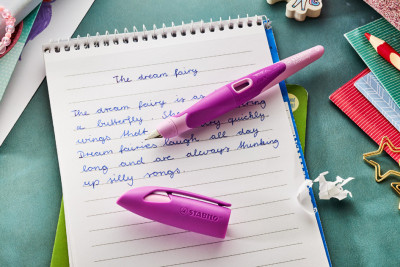 The dream fairy
The dream fairy is as
a butterfly. She
wings that very quickly.
Dream fairies laugh all day
long and are always thinking
up silly songs.
STABILO